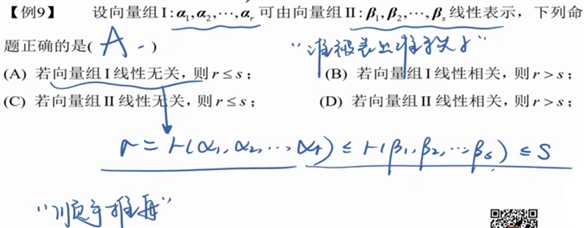 【例9】 设向量组 I:α₁,α₂,⋯,αᵣ 可由向量组 II:β₁,β₂,⋯,βₛ 线性表示，下列命
题正确的是( A )
(A) 若向量组 I 线性无关，则 r≤s； (B) 若向量组 I 线性相关，则 r>s；
(C) 若向量组 II 线性无关，则 r≤s； (D) 若向量组 II 线性相关，则 r>s；
r = r(α₁,α₂,⋯,αᵣ) ≤ r(β₁,β₂,⋯,βₛ) ≤ s